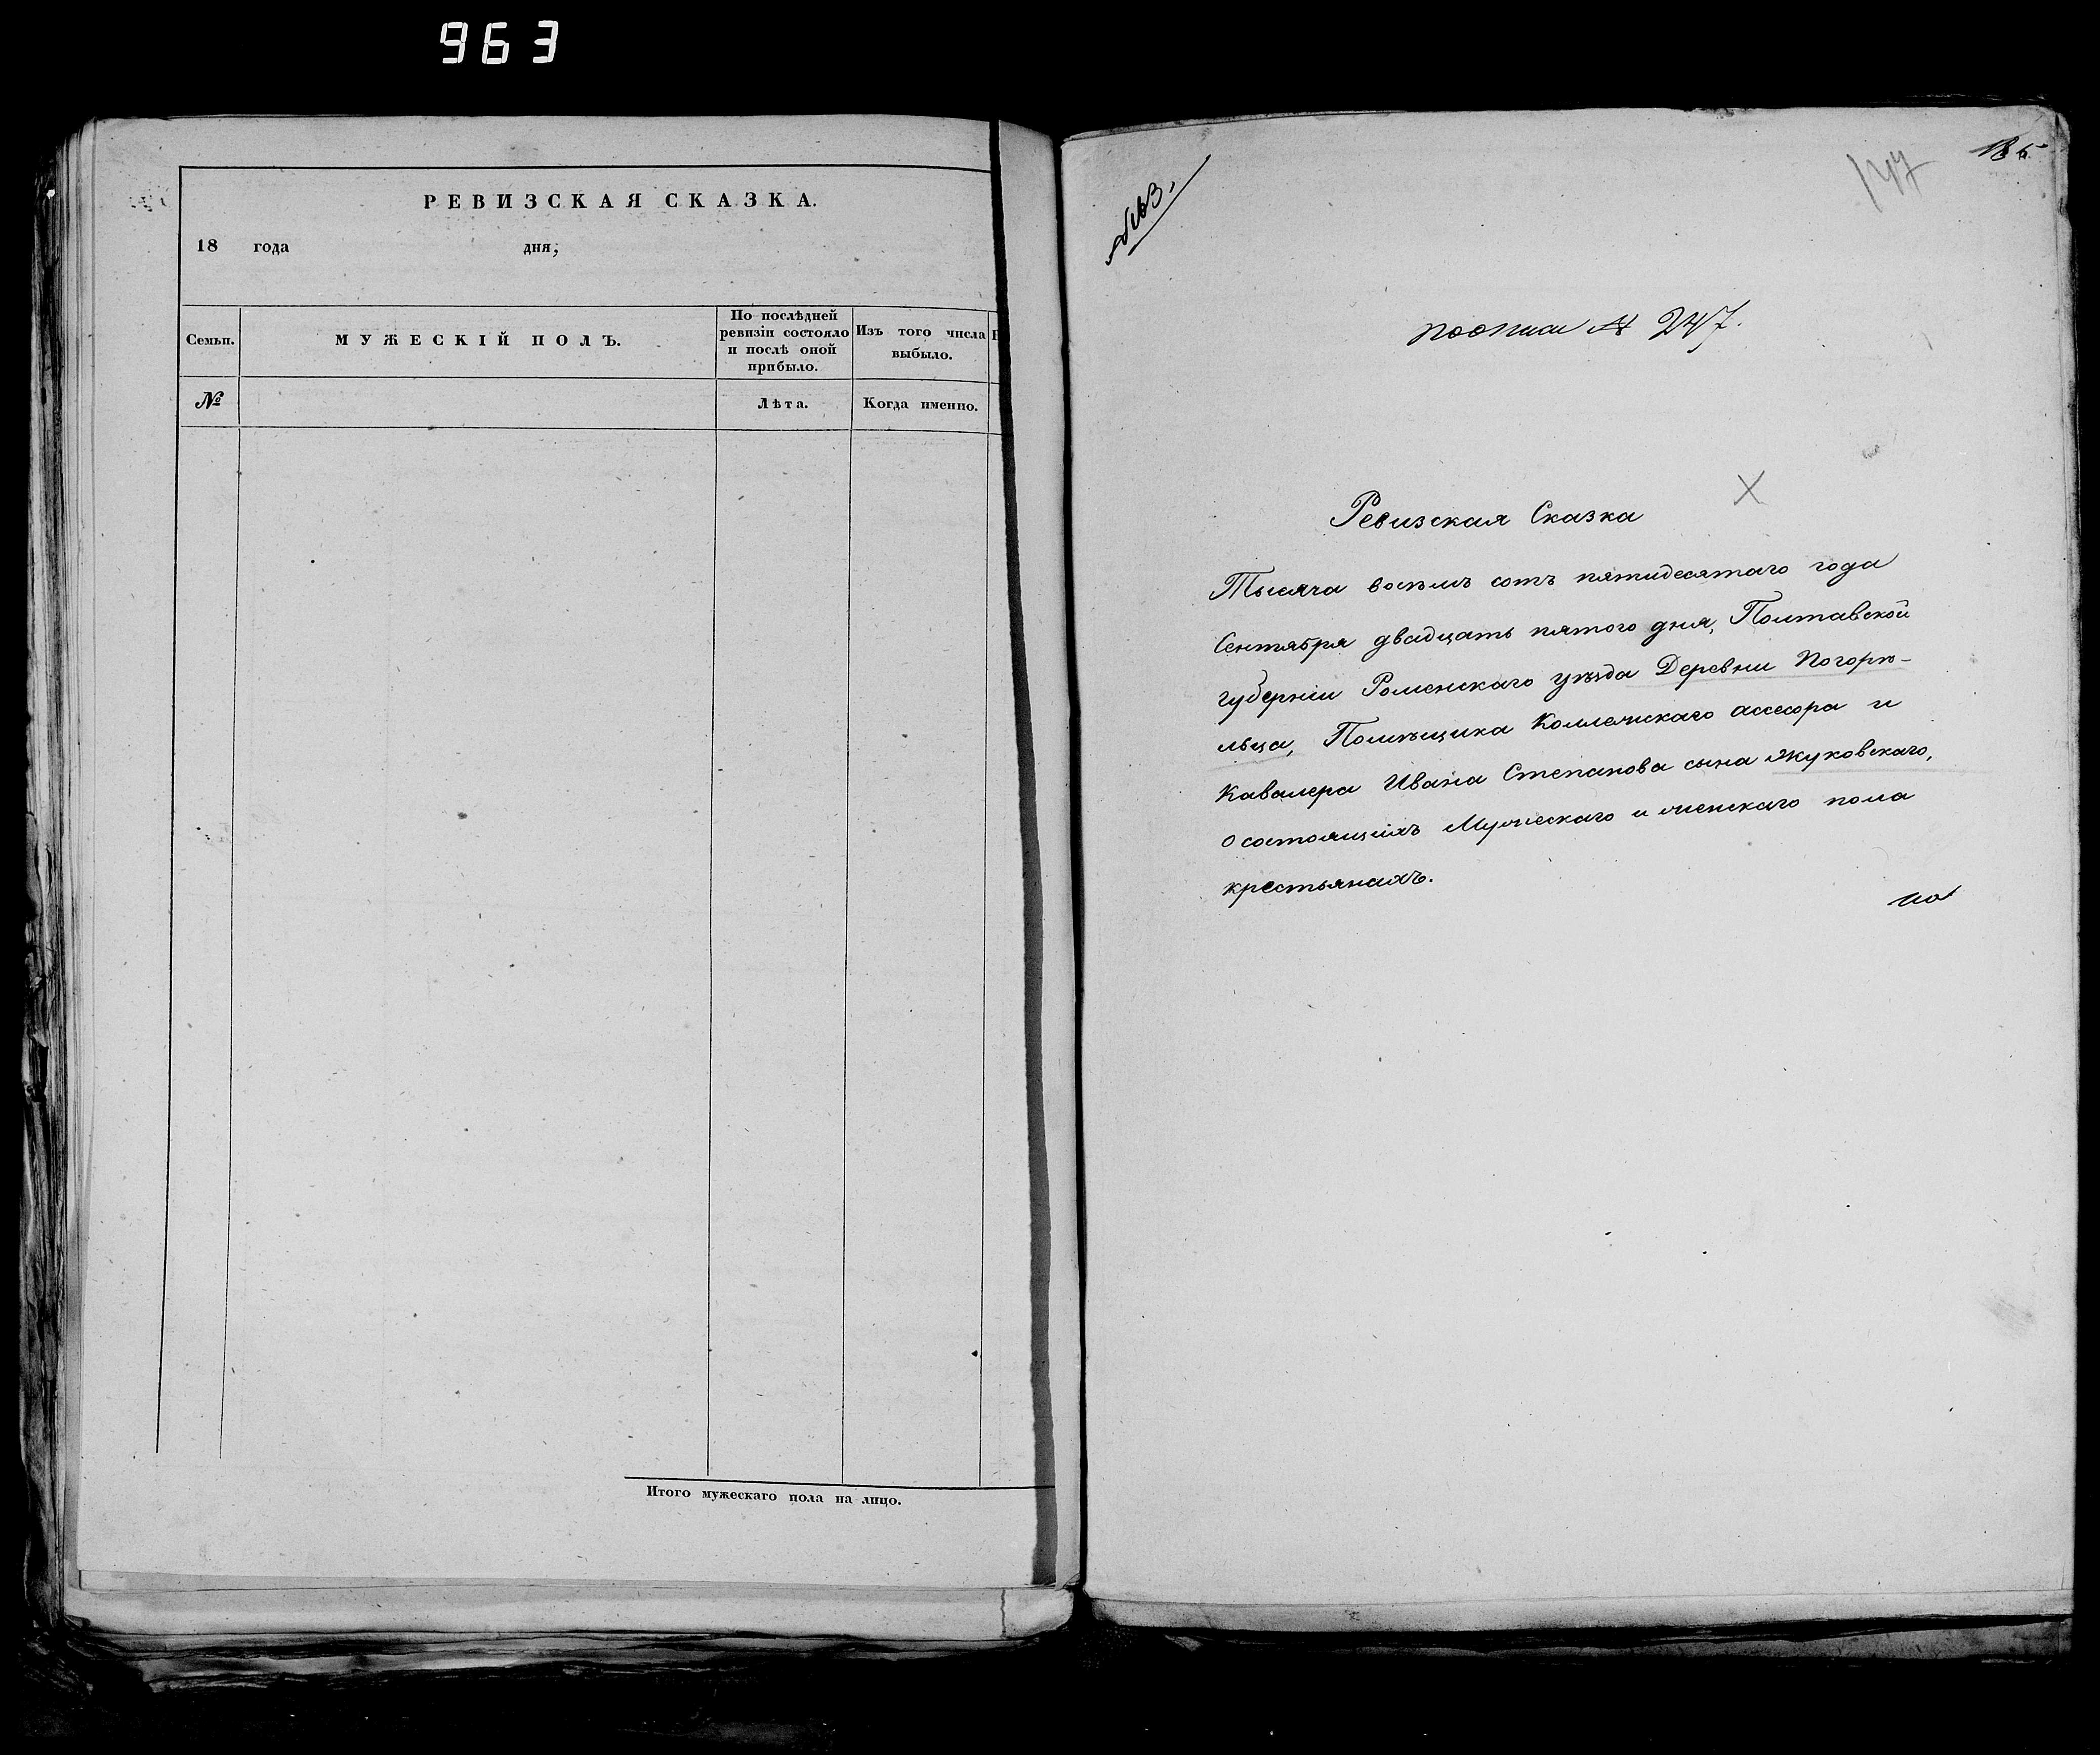 963
РЕВИЗСКАЯ СКАЗКА.
18 года дня,
Семьи.
МУЖЕСКІЙ ПОЛЪ.
По послѣдней
ревизіи состояло
и послѣ оной
прибыло.
Изъ того числа
выбыло.
№
Лѣта.
Когда именно.
Итого мужескаго пола на лицо.
147
№ 247.
Ревизская Сказка
X
Тысяча восемь сотъ пятидесятаго года
Сентября двадцать пятого дня, Полтавской
губерніи Роменскаго уѣзда Деревни Погорѣ-
льца, Помѣщика Коллежскаго ассесора и
Кавалера Ивана Степанова сына Жуковскаго,
о состоящихъ Мужескаго и женскаго пола
крестьянахъ.